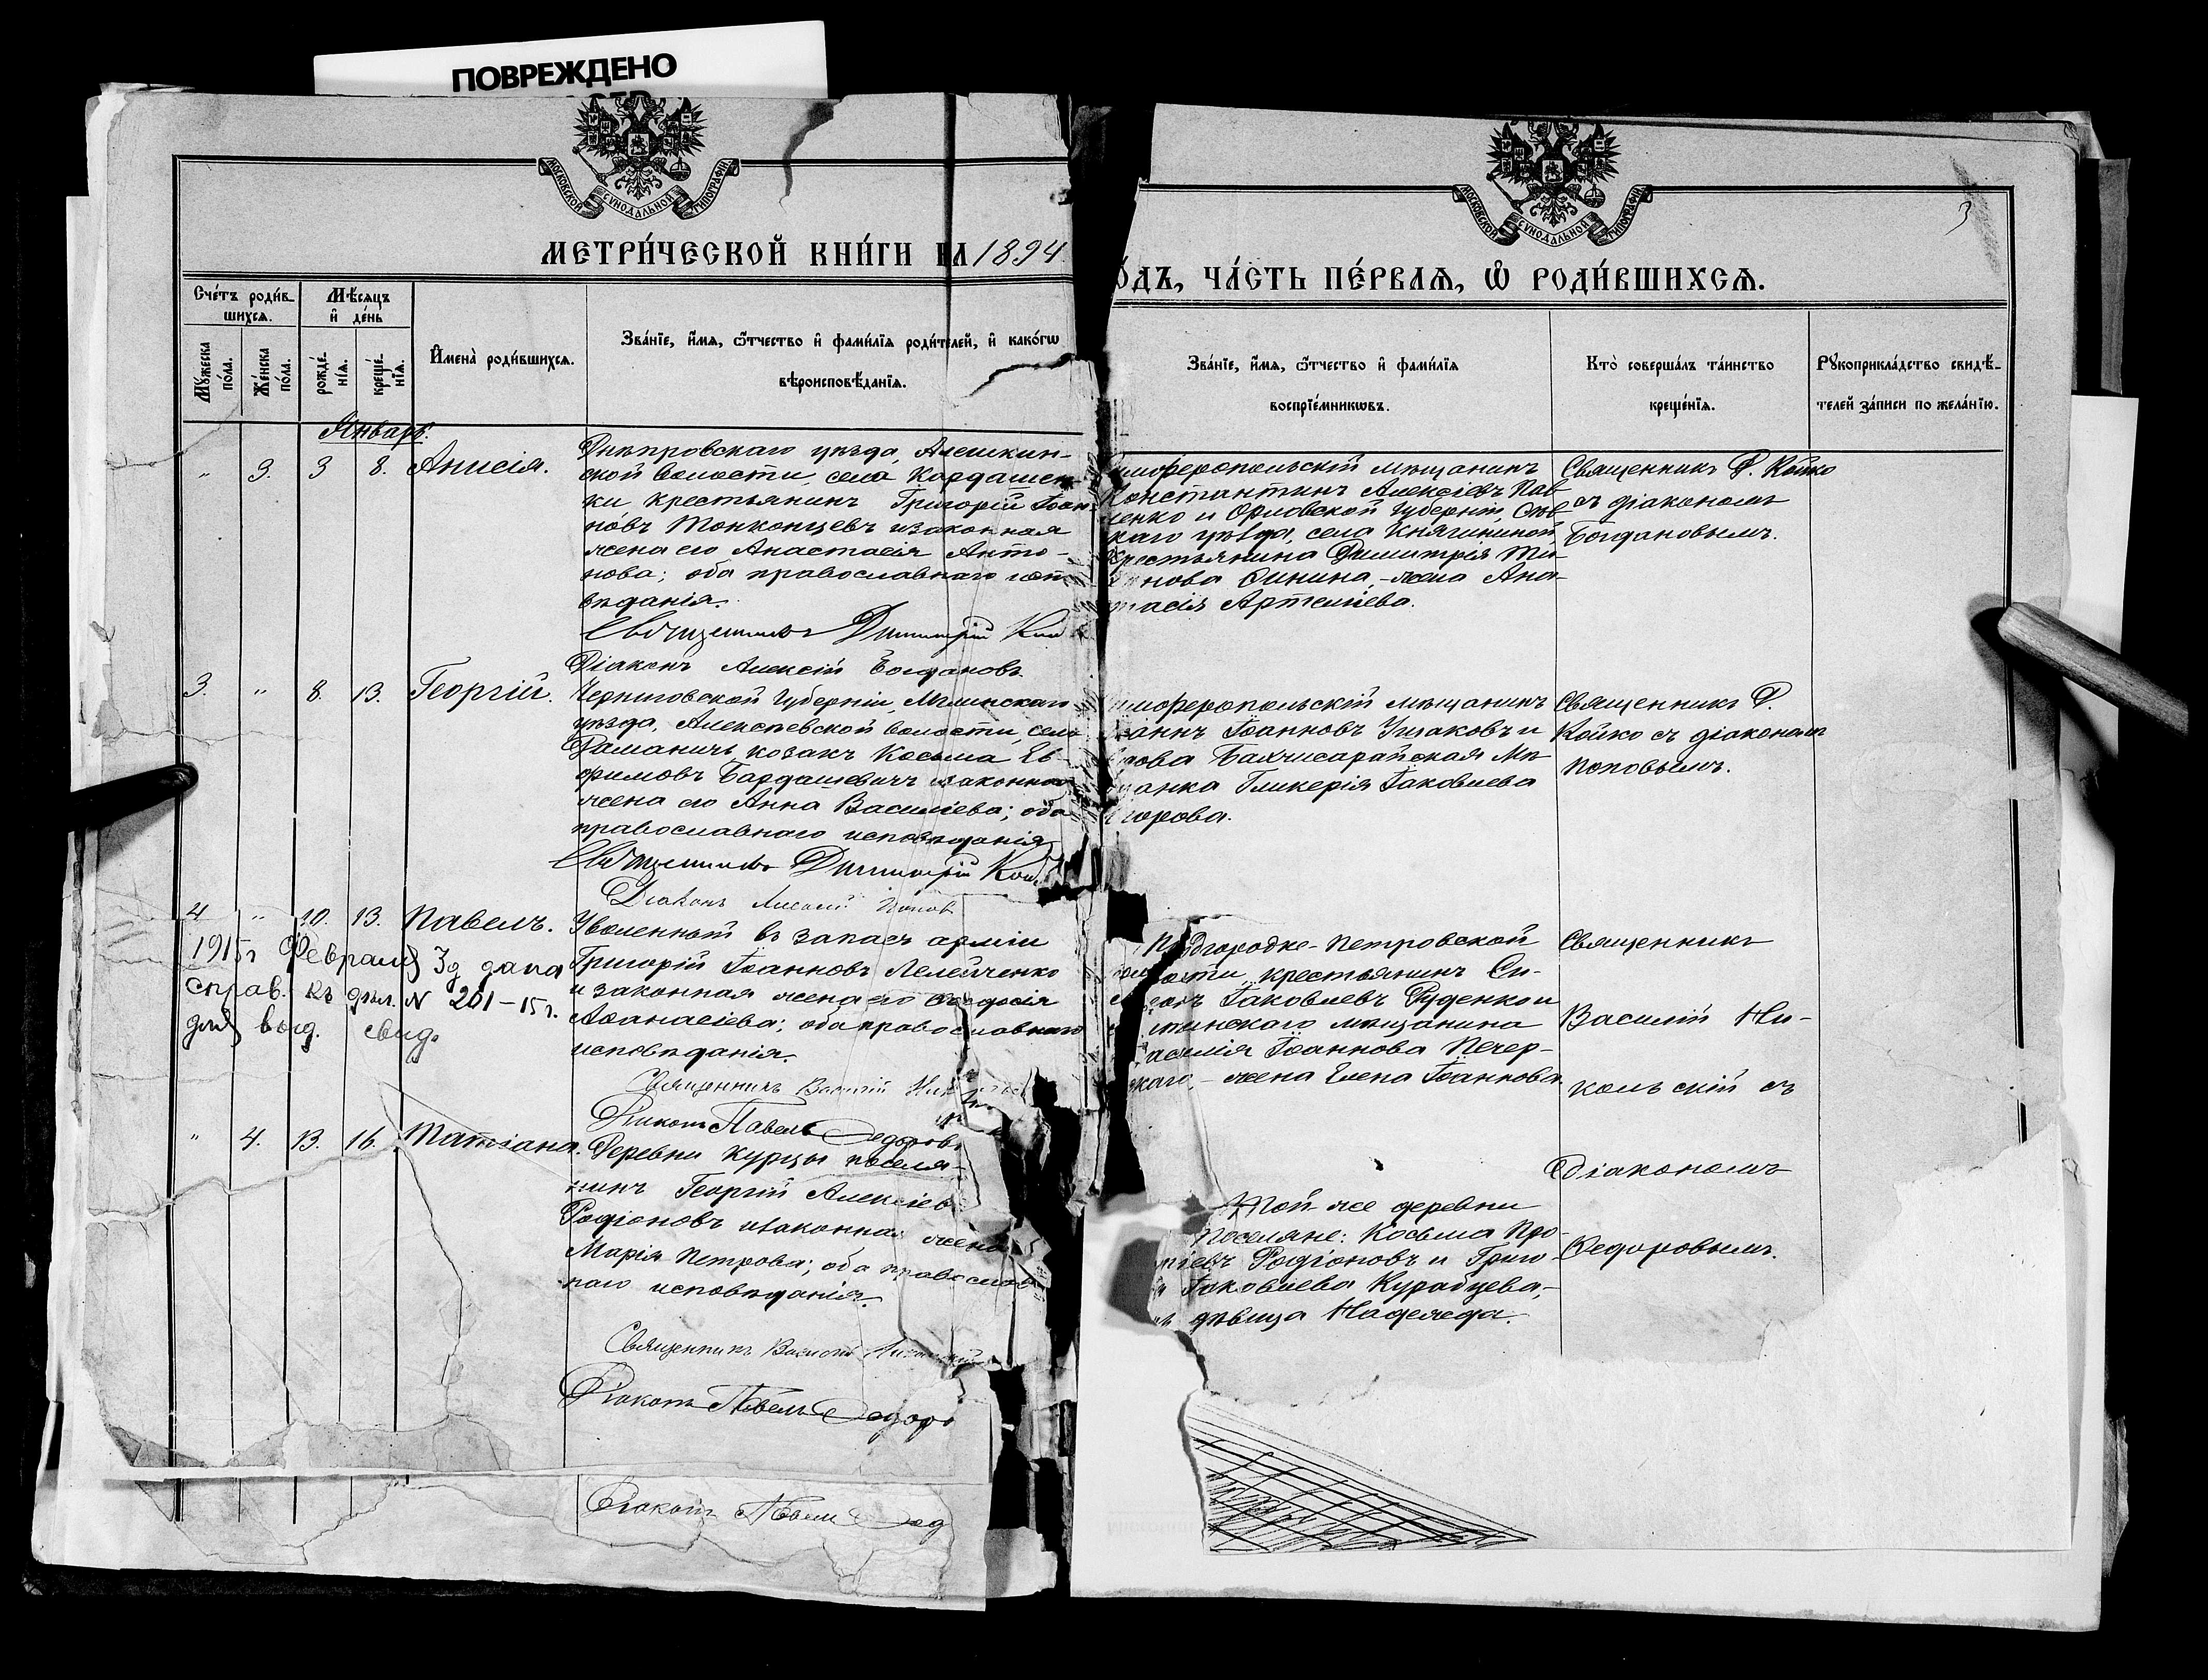 ПОВРЕЖДЕНО
МОСКОВСКОЙ СѴНОДАЛЬНОЙ ТИПОГРАФІИ
МОСКОВСКОЙ СѴНОДАЛЬНОЙ ТИПОГРАФІИ
3
МЕТРИ́ЧЕСКОЙ КНИ́ГИ НА 1894
ОДЪ, ЧА́СТЬ ПЕ́РВАѦ, Ѿ РОДИ́ВШИХСѦ.
Сче́тъ роди́в-
шихсѧ.
Мѣ́сѧцъ
и҆ де́нь
Мꙋ́жеска по́ла.
Же́нска по́ла.
рожде́нїѧ.
креще́нїѧ.
И҆мена̀ роди́вшихсѧ.
Зва́нїе, и҆́мѧ, ѻ҆́тчество и҆ фами́лїѧ роди́телей, и҆ како́гѡ
вѣроисповѣ́данїѧ.
Зва́нїе, и҆́мѧ, ѻ҆́тчество и҆ фами́лїѧ
воспрїе́мникѡвъ.
Кто̀ соверша́лъ та́инство
креще́нїѧ.
Рꙋкоприкла́дство свидѣ́-
телей за́писи по жела́нїю.
Январь.
" 3. 3 8. Анисія.
Днѣпровскаго уѣзда, Алешкин-
ской волости, села Кардашен-
ки крестьянинъ Григорій Іоан
новъ Тонконцевъ и законная
жена его Анастасія Анто-
нова; оба православнаго
вѣданія.
Священникъ Димитрій
Діаконъ Алексій Богдановъ
имферопольскій мѣщанинъ
Константинъ Алексіевъ Пав
ленко и Орловской губерніи, Сѣв
каго уѣзда, села Княгининой
крестьянина Димитрія
нова Синина, - жена Ана-
тасія Артеміева.
Священникъ Д. Койко
съ діакономъ
Богдановымъ.
3. " 8. 13. Георгій.
Черниговской губерніи, Мглинскаго
уѣзда, Алексѣевской волости, села
Романичъ козакъ Косьма Ев-
фимовъ Бардашевичъ и законная
жена его Анна Василіева; оба
православнаго исповѣданія
Священникъ Димитрій
Діаконъ Попов
имферопольскій мѣщанинъ
Іоаннъ Іоанновъ Ушаковъ и
Бахчисарайская мѣ
щанка Гликерія Іаковлева
горова.
Священникъ Д.
Койко съ діакономъ
Поповымъ.
4 " 10. 13. Павелъ.
1915г Февраля 3д дана
справ. къ дѣл. № 201-15г.
для воед. свид.
Уволенный въ запасъ арміи
Григорій Іоанновъ Лелейченко
и законная жена его Ѳеодосія
Аѳанасіева; оба православнаго
исповѣданія.
Священникъ Василій
Діаконъ Павелъ Ѳедоровъ
Подгородке-Петровской
волости, крестьянинъ Си-
Іаковлевъ Руденко и
мѣщанина
асилія Іоаннова Печер-
скаго, - жена Елена Іоаннова
Священникъ
Василій Ни-
кольскій съ
діакономъ
Ѳедоровымъ.
" 4. 13. 16. Татіана.
Деревни Курцы поселя-
нинъ Георгій Алексіевъ
Родіоновъ и законная жена
Марія Петрова; оба православ
наго исповѣданія.
Священникъ Василій
Діаконъ Павелъ Ѳедоро
Той-же деревни
поселяне: Косьма Про
піевъ Родіоновъ и Григо
Іаковлева Курабцева,-
дѣвица Надежда.
Діаконъ Павелъ Ѳед